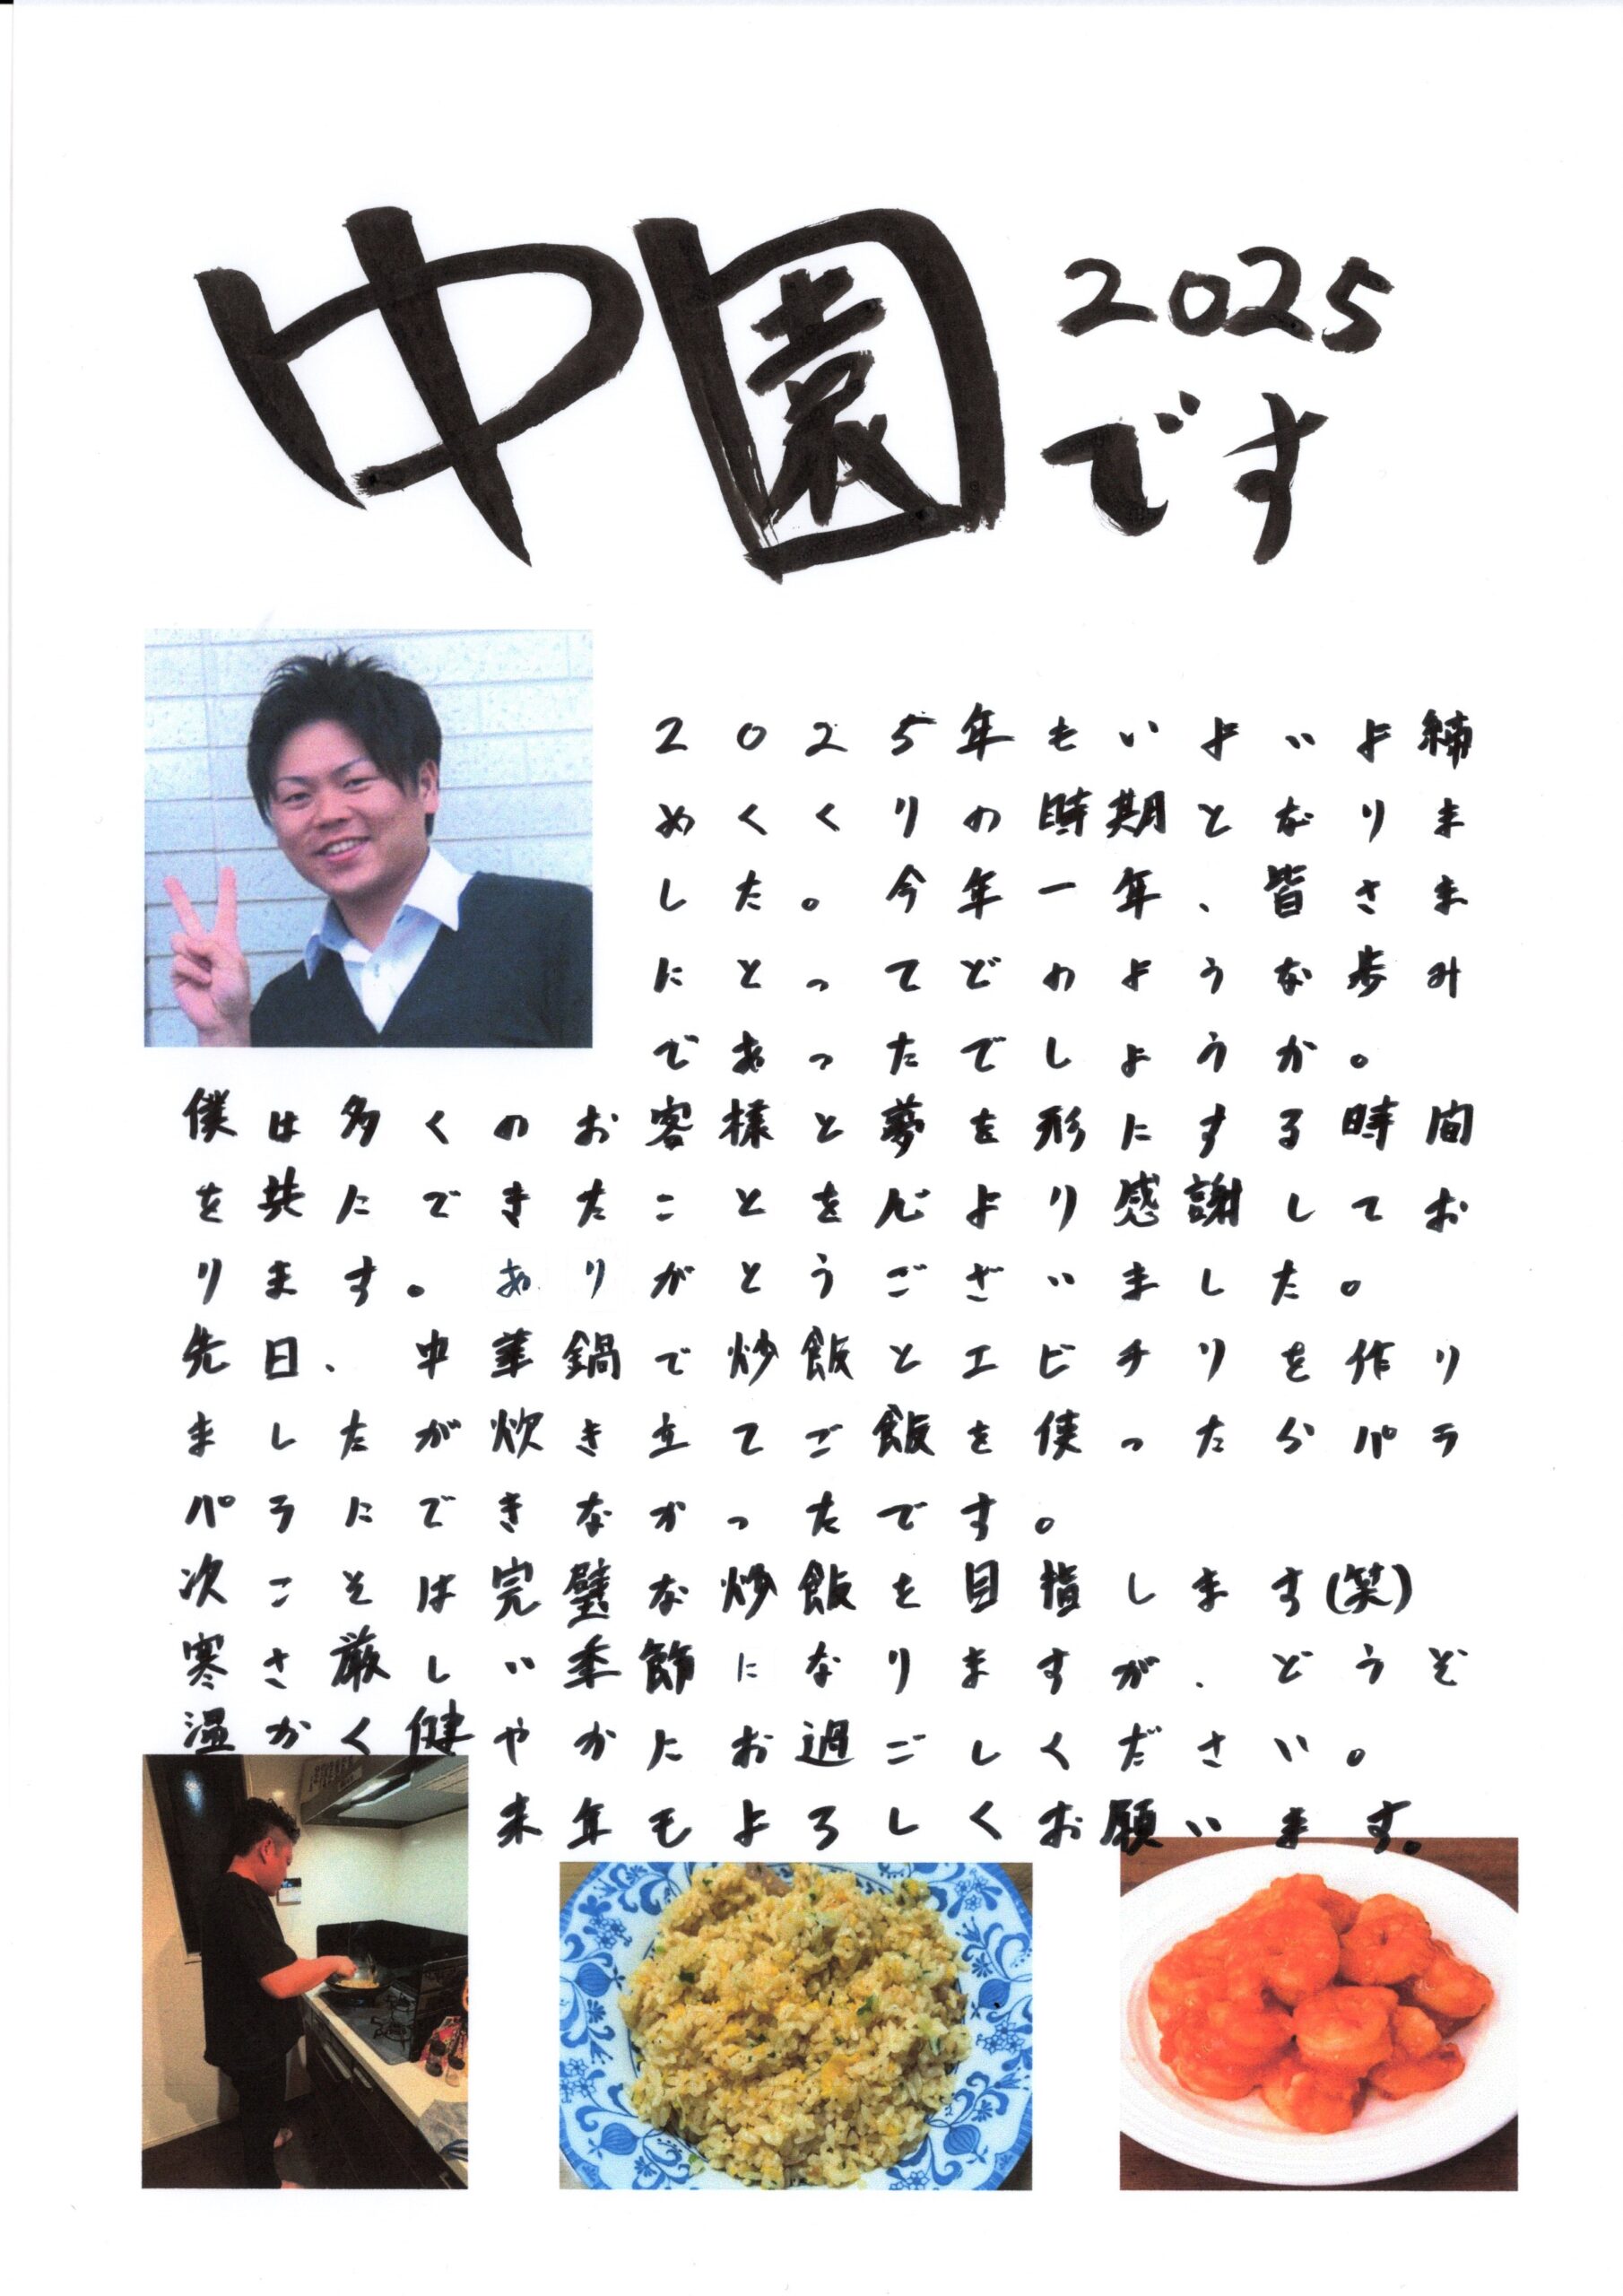 中園
2025
です
2025年もいよいよ締
めくくりの時期となりま
した。今年一年、皆さま
にとってどのような歩み
であったでしょうか。
僕は多くのお客様と夢を形にする時間
を共にできたことを心より感謝してお
ります。ありがとうございました。
先日、中華鍋で炒飯とエビチリを作り
ましたが炊き立てご飯を使った分パラ
パラにできなかったです。
次こそは完璧な炒飯を目指します(笑)
寒さ厳しい季節になりますが、どうぞ
温かく健やかにお過ごしください。
来年もよろしくお願います。